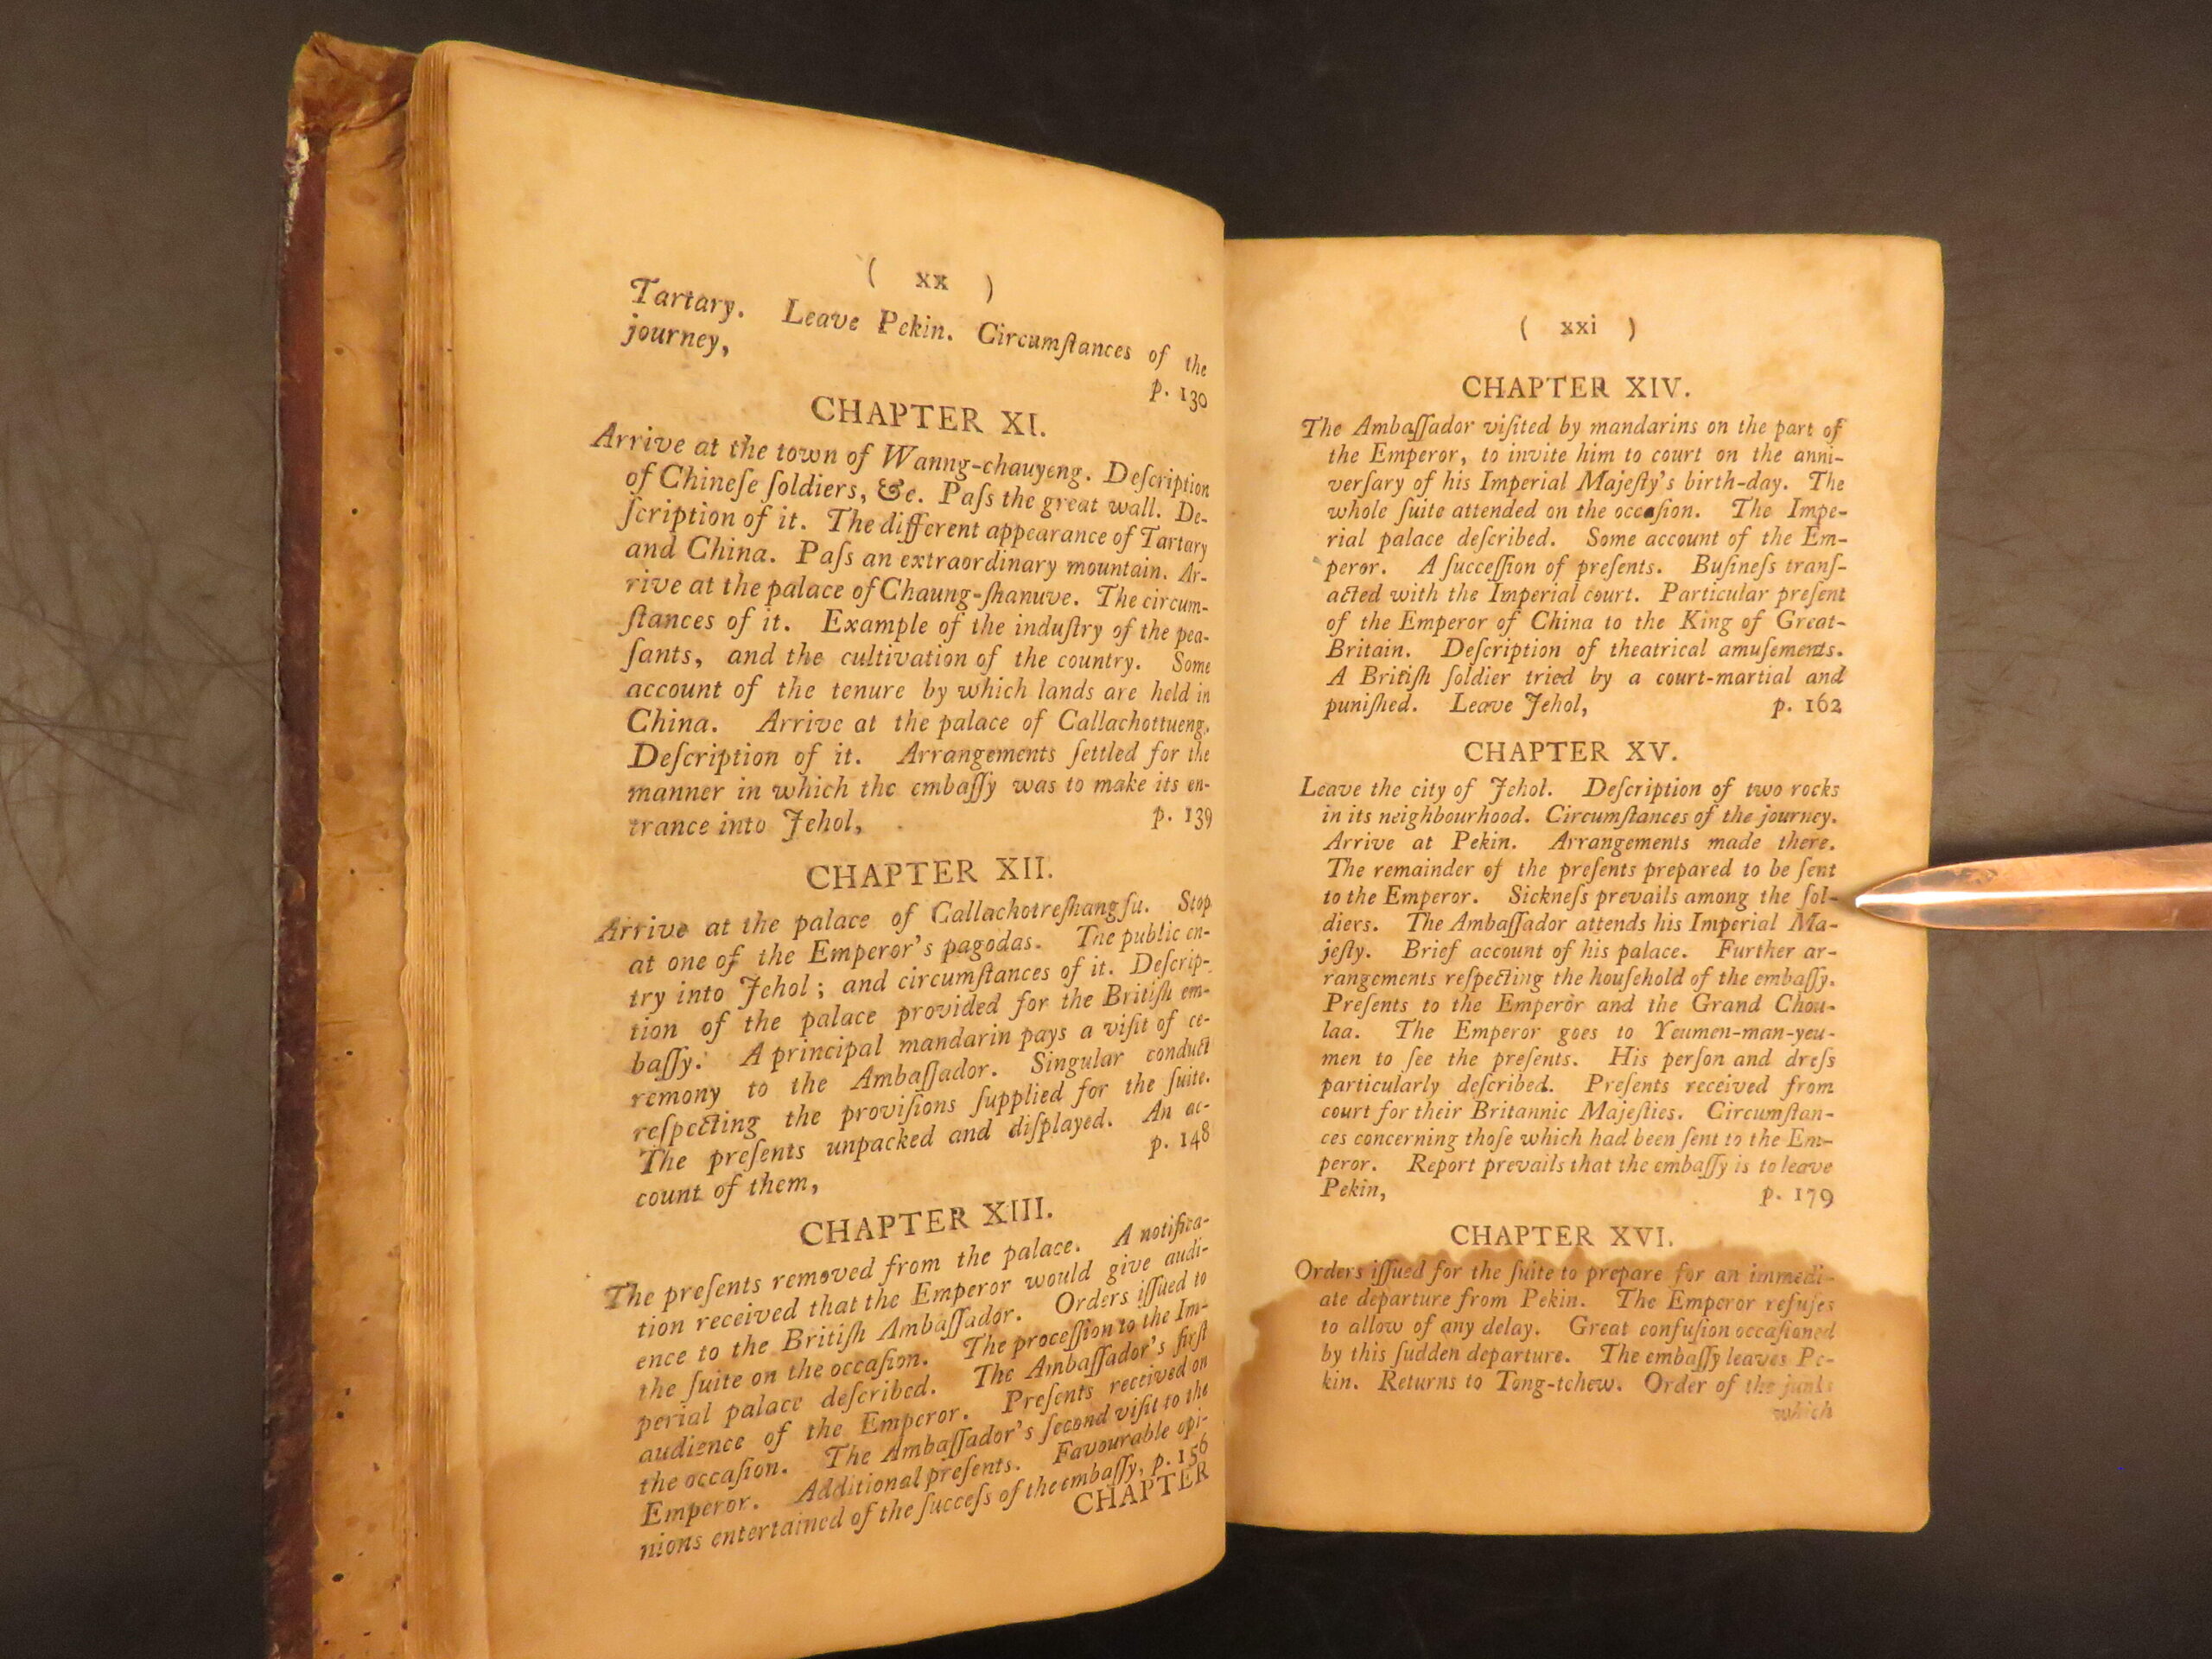 ( xx )
Tartary. Leave Pekin. Circumſtances of the
journey,
p. 130
CHAPTER XI.
Arrive at the town of Wanng-chauyeng. Deſcription
of Chineſe ſoldiers, &c. Paſs the great wall. De-
ſcription of it. The different appearance of Tartary
and China. Paſs an extraordinary mountain. Ar-
rive at the palace of Chaung-ſhanuve. The circum-
ſtances of it. Example of the induſtry of the pea-
ſants, and the cultivation of the country. Some
account of the tenure by which lands are held in
China. Arrive at the palace of Callachottueng.
Deſcription of it. Arrangements ſettled for the
manner in which the embaſſy was to make its en-
trance into Jehol, p. 139
CHAPTER XII.
Arrive at the palace of Callachotreſhangſu. Stop
at one of the Emperor's pagodas. The public en-
try into Jehol; and circumſtances of it. Deſcrip-
tion of the palace provided for the Britiſh em-
baſſy. A principal mandarin pays a viſit of ce-
remony to the Ambaſſador. Singular conduct
reſpecting the proviſions ſupplied for the ſuite.
The preſents unpacked and diſplayed. An ac-
count of them, p. 148
CHAPTER XIII.
The preſents removed from the palace. A notifica-
tion received that the Emperor would give audi-
ence to the Britiſh Ambaſſador. Orders iſſued to
the ſuite on the occaſion. The proceſſion to the Im-
perial palace deſcribed. The Ambaſſador's firſt
audience of the Emperor. Preſents received on
the occaſion. The Ambaſſador's ſecond viſit to the
Emperor. Additional preſents. Favourable opi-
nions entertained of the ſucceſs of the embaſſy, p. 156
CHAPTER
( xxi )
CHAPTER XIV.
The Ambaſſador viſited by mandarins on the part of
the Emperor, to invite him to court on the anni-
verſary of his Imperial Majeſty's birth-day. The
whole ſuite attended on the occaſion. The Impe-
rial palace deſcribed. Some account of the Em-
peror. A ſucceſſion of preſents. Buſineſs tranſ-
acted with the Imperial court. Particular preſent
of the Emperor of China to the King of Great-
Britain. Deſcription of theatrical amuſements.
A Britiſh ſoldier tried by a court-martial and
puniſhed. Leave Jehol, p. 162
CHAPTER XV.
Leave the city of Jehol. Deſcription of two rocks
in its neighbourhood. Circumſtances of the journey.
Arrive at Pekin. Arrangements made there.
The remainder of the preſents prepared to be ſent
to the Emperor. Sickneſs prevails among the ſol-
diers. The Ambaſſador attends his Imperial Ma-
jeſty. Brief account of his palace. Further ar-
rangements reſpecting the houſehold of the embaſſy.
Preſents to the Emperor and the Grand Chou-
laa. The Emperor goes to Yeumen-man-yeu-
men to ſee the preſents. His perſon and dreſs
particularly deſcribed. Preſents received from
court for their Britannic Majeſties. Circumſtan-
ces concerning thoſe which had been ſent to the Em-
peror. Report prevails that the embaſſy is to leave
Pekin, p. 179
CHAPTER XVI.
Orders iſſued for the ſuite to prepare for an immedi-
ate departure from Pekin. The Emperor refuſes
to allow of any delay. Great confuſion occaſioned
by this ſudden departure. The embaſſy leaves Pe-
kin. Returns to Tong-tchew. Order of the junks
which